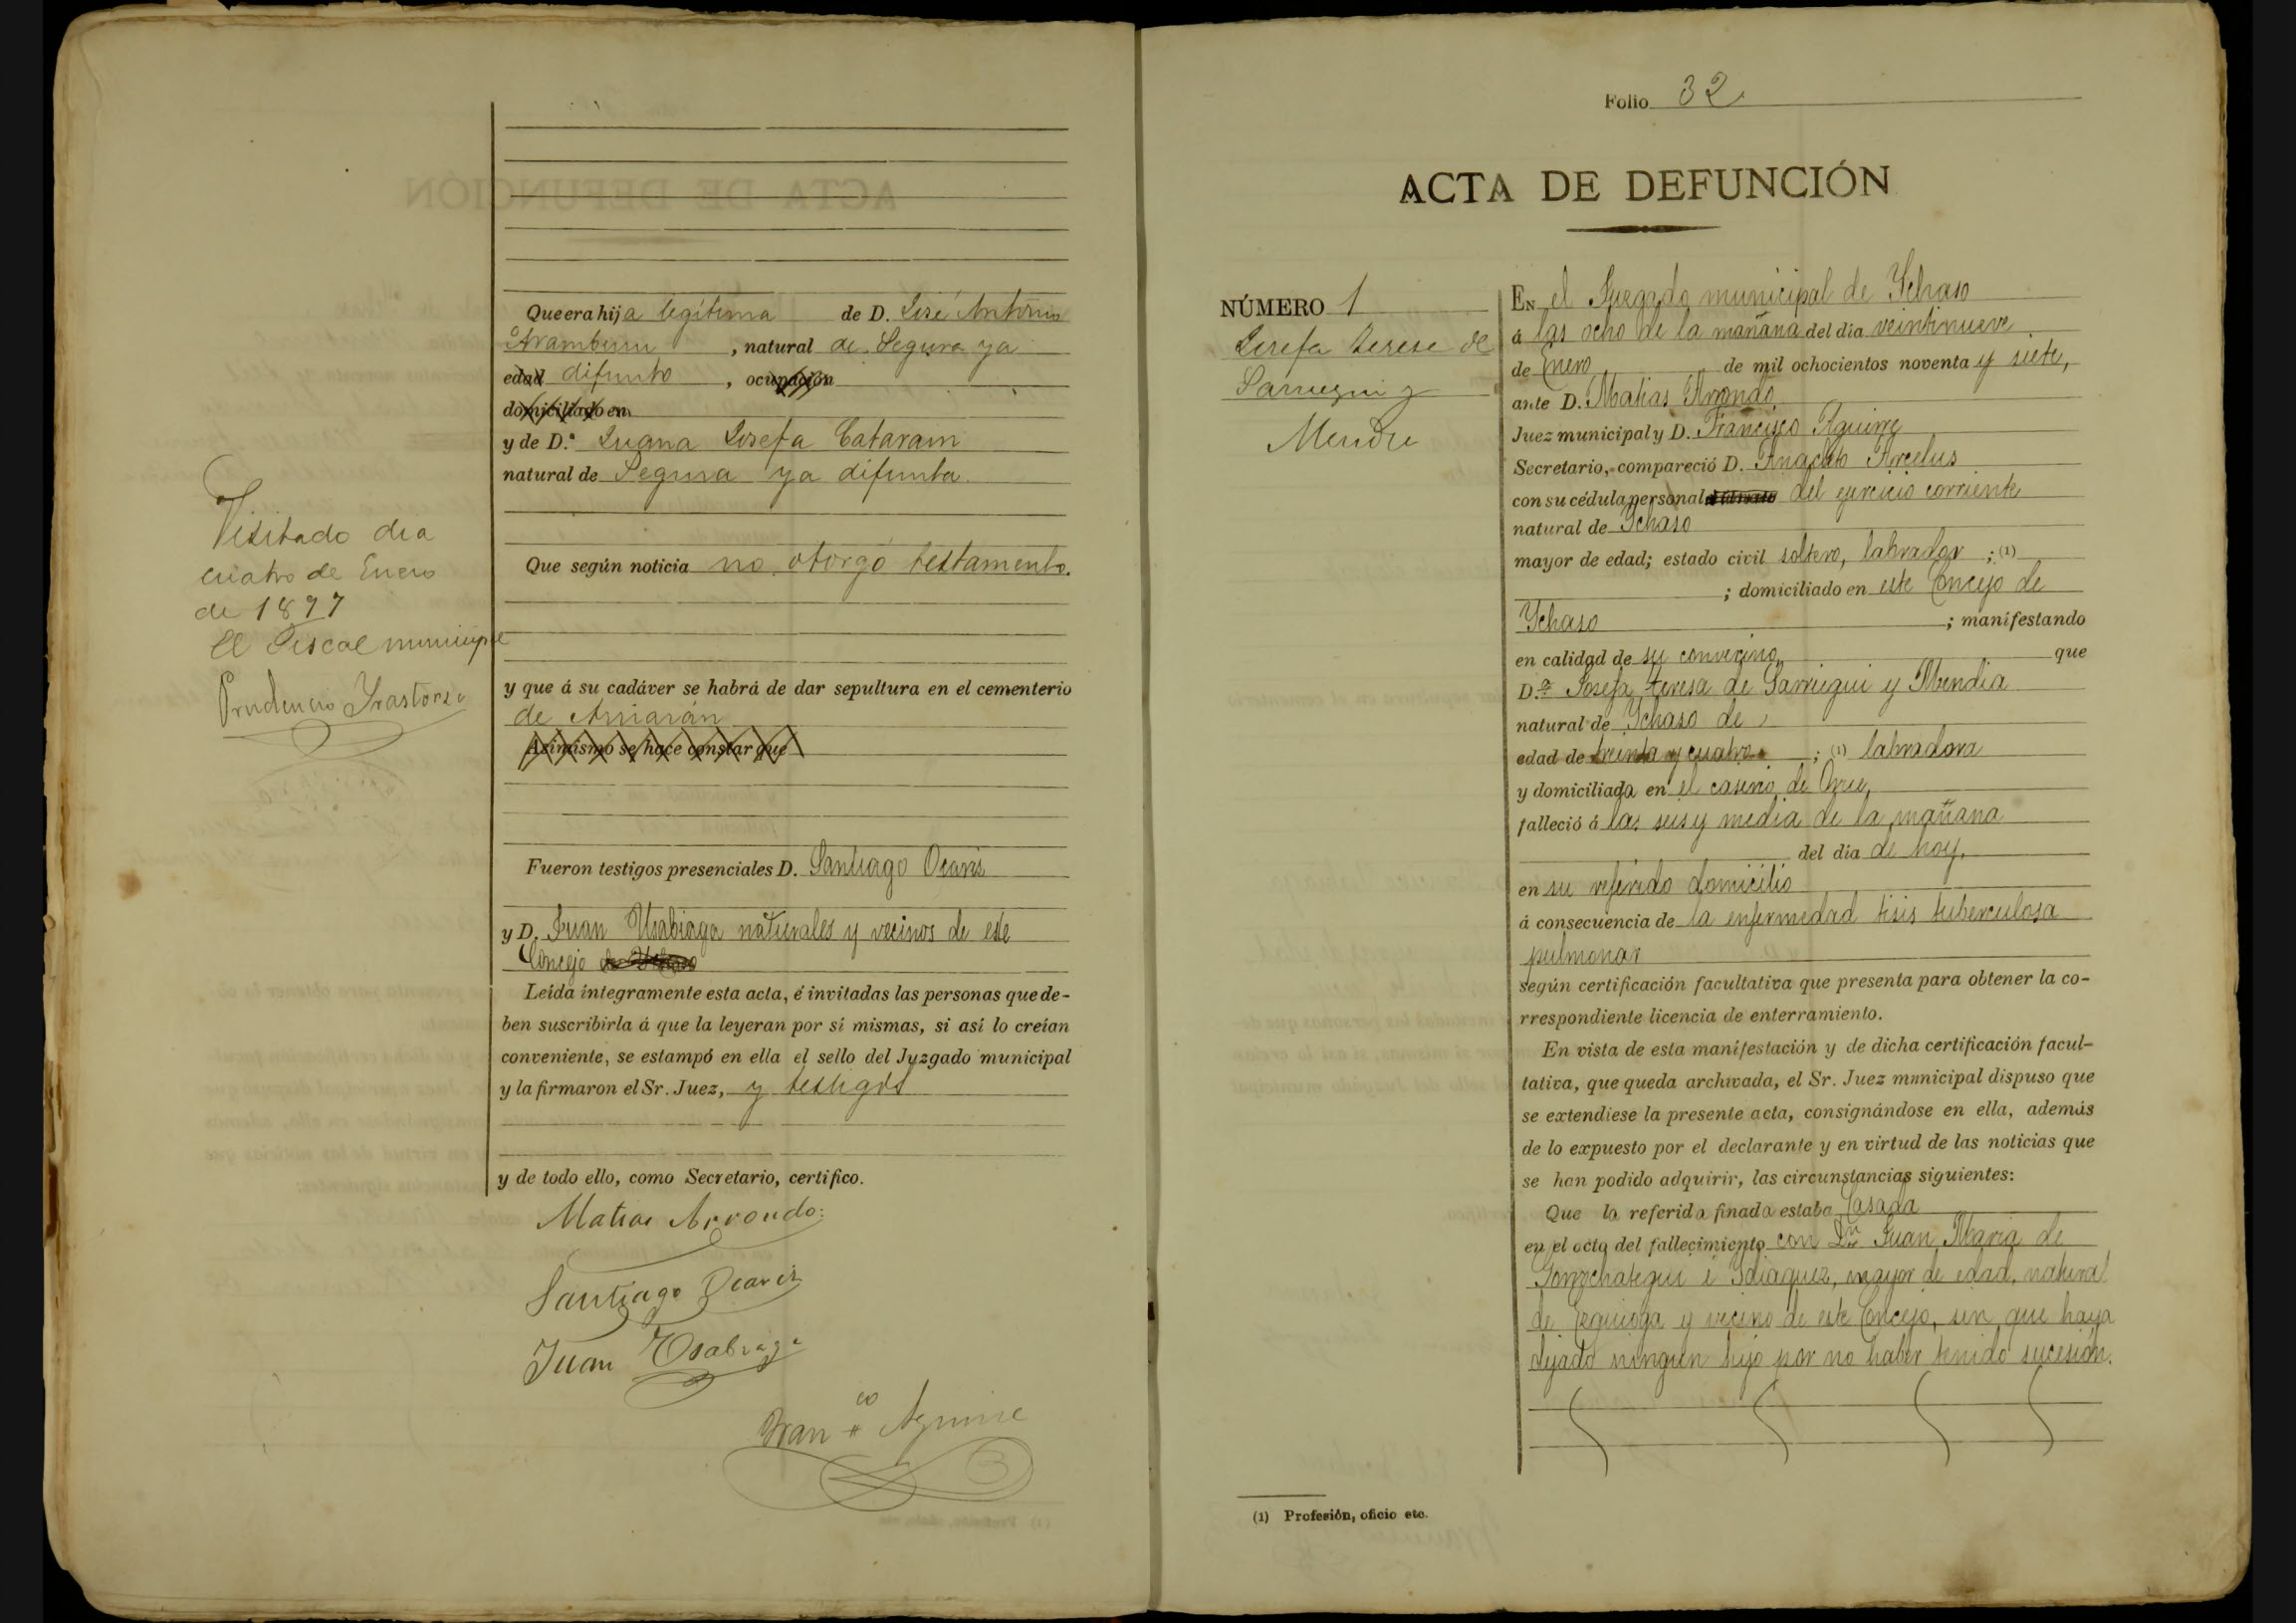 Que era hija legítima de D. José Antonio
Aramburu, natural de Segura ya
edad difunto, ocupación
domiciliado en
y de D.ª Juana Josefa Catarain
natural de Segura ya difunta.
Que según noticia no otorgó testamento.
y que á su cadáver se habrá de dar sepultura en el cementerio
de Arriarán
Asimismo se hace constar que
Fueron testigos presenciales D. Santiago Ocariz
y D. Juan Usabiaga naturales y vecinos de este
Concejo
Leída íntegramente esta acta, é invitadas las personas que de-
ben suscribirla á que la leyeran por sí mismas, si así lo creían
conveniente, se estampó en ella el sello del Juzgado municipal
y la firmaron el Sr. Juez, y testigos
y de todo ello, como Secretario, certifico.
Matias Arrondo
Santiago Ocariz
Juan Usabiaga
Fran co Aguirre
Visitado dia
cuatro de Enero
de 1897
El Fiscal municipal
Prudencio Irastorza
Folio 32
ACTA DE DEFUNCIÓN
NÚMERO 1
Josefa Teresa de
Sarriegui y
Mendia
En el Juzgado municipal de Ychaso
á las ocho de la mañana del día veintinueve
de Enero de mil ochocientos noventa y siete,
ante D. Matias Arrondo
Juez municipal y D. Francisco Aguirre
Secretario, compareció D. Anacleto Arcelus
con su cédula personal del ejercicio corriente
natural de Ychaso
mayor de edad; estado civil soltero, labrador ; (1)
; domiciliado en este Concejo de
Ychaso ; manifestando
en calidad de su convecino que
D.ª Josefa Teresa de Sarriegui y Mendia
natural de Ychaso de
edad de treinta y cuatro ; (1) labradora
y domiciliada en el caserio de Orue,
falleció á las seis y media de la mañana
del día de hoy.
en su referido domicilio
á consecuencia de la enfermedad tisis tuberculosa
pulmonar
según certificación facultativa que presenta para obtener la co-
rrespondiente licencia de enterramiento.
En vista de esta manifestación y de dicha certificación facul-
tativa, que queda archivada, el Sr. Juez municipal dispuso que
se extendiese la presente acta, consignándose en ella, además
de lo expuesto por el declarante y en virtud de las noticias que
se han podido adquirir, las circunstancias siguientes:
Que la referida finada estaba Casada
en el acto del fallecimiento con Dn Juan Maria de
Gorrochategui é Idiaquez, mayor de edad, natural
de Ezquioga y vecino de este Concejo, sin que haya
dejado ningun hijo por no haber tenido sucesión.
(1) Profesión, oficio etc.